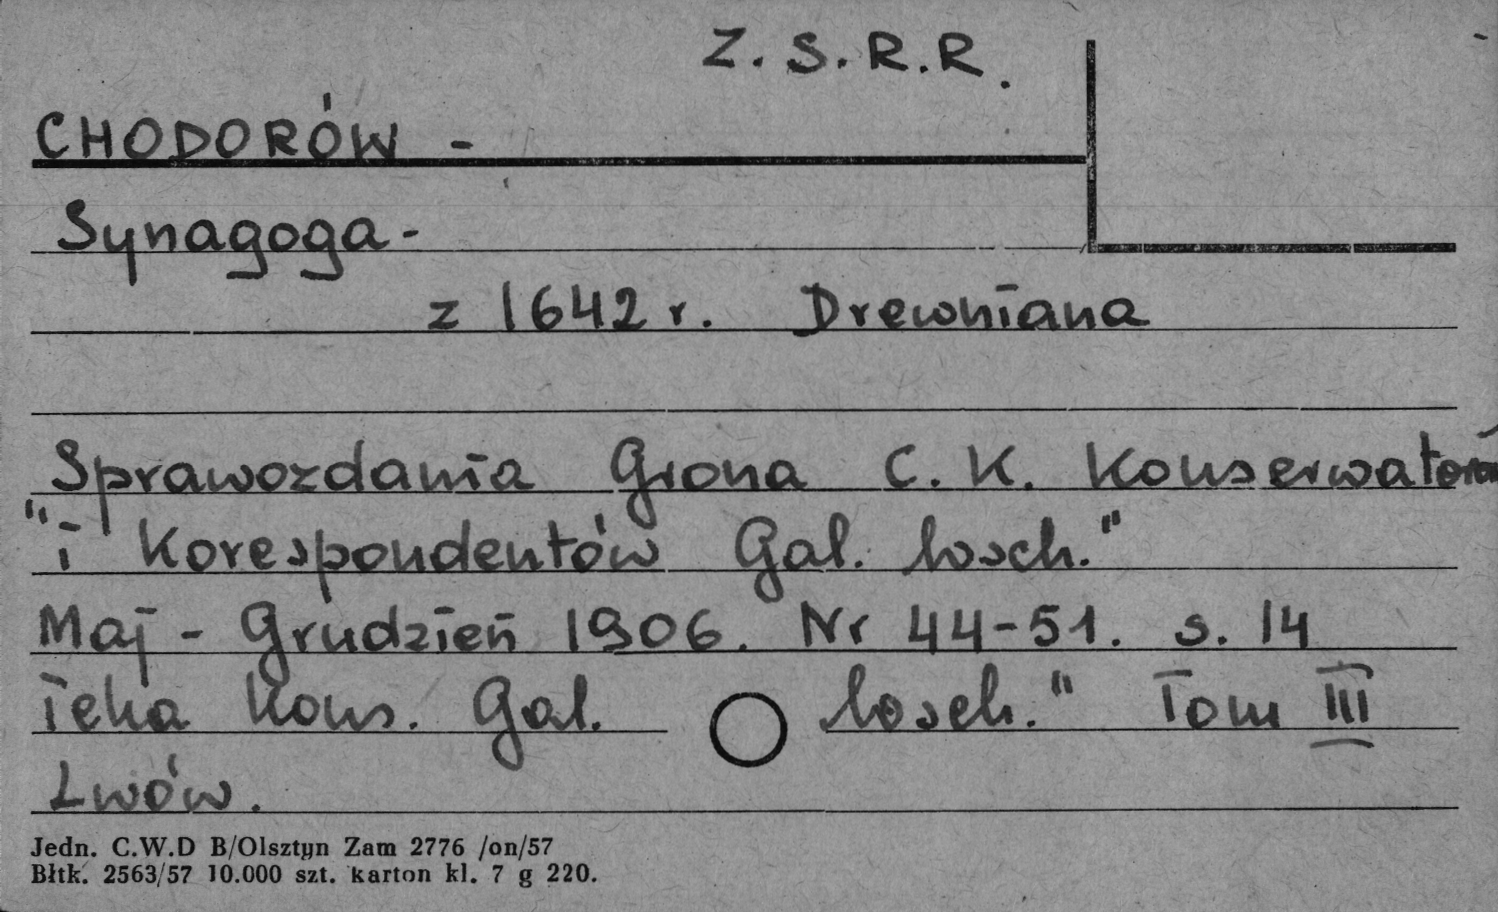 Z.S.R.R.
CHODORÓW -
Synagoga -
z 1642 r. Drewniana
Sprawozdania Grona C. K. Konserwatorów
"i Korespondentów Gal. wsch."
Maj - Grudzień 1906. Nr 44-51. s. 14
Teka Kons. Gal. wsch." Tom III
Lwów.
Jedn. C.W.D B/Olsztyn Zam 2776 /on/57
Błtk. 2563/57 10.000 szt. karton kl. 7 g 220.